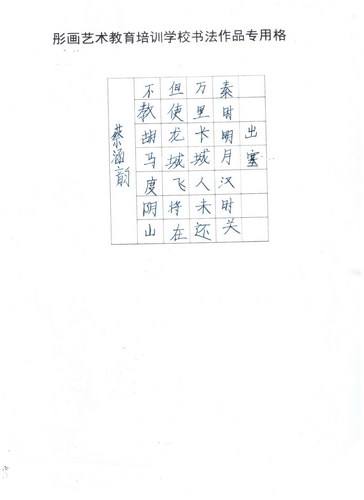 彤画艺术教育培训学校书法作品专用格
出塞
秦时明月汉时关
万里长城人未还
但使龙城飞将在
不教胡马度阴山
蔡涵韵